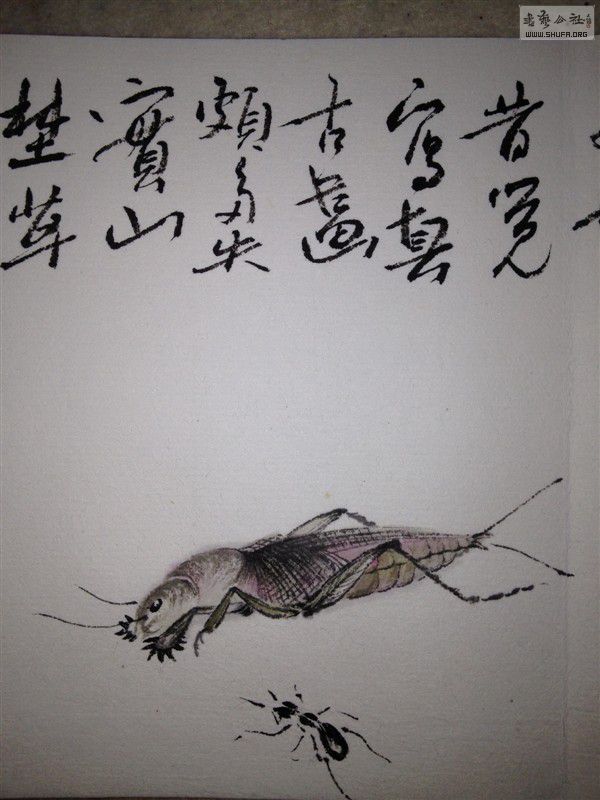 昔覺
寫真
古畫
頗多失
實山
埜草
書藝公社
WWW.SHUFA.ORG